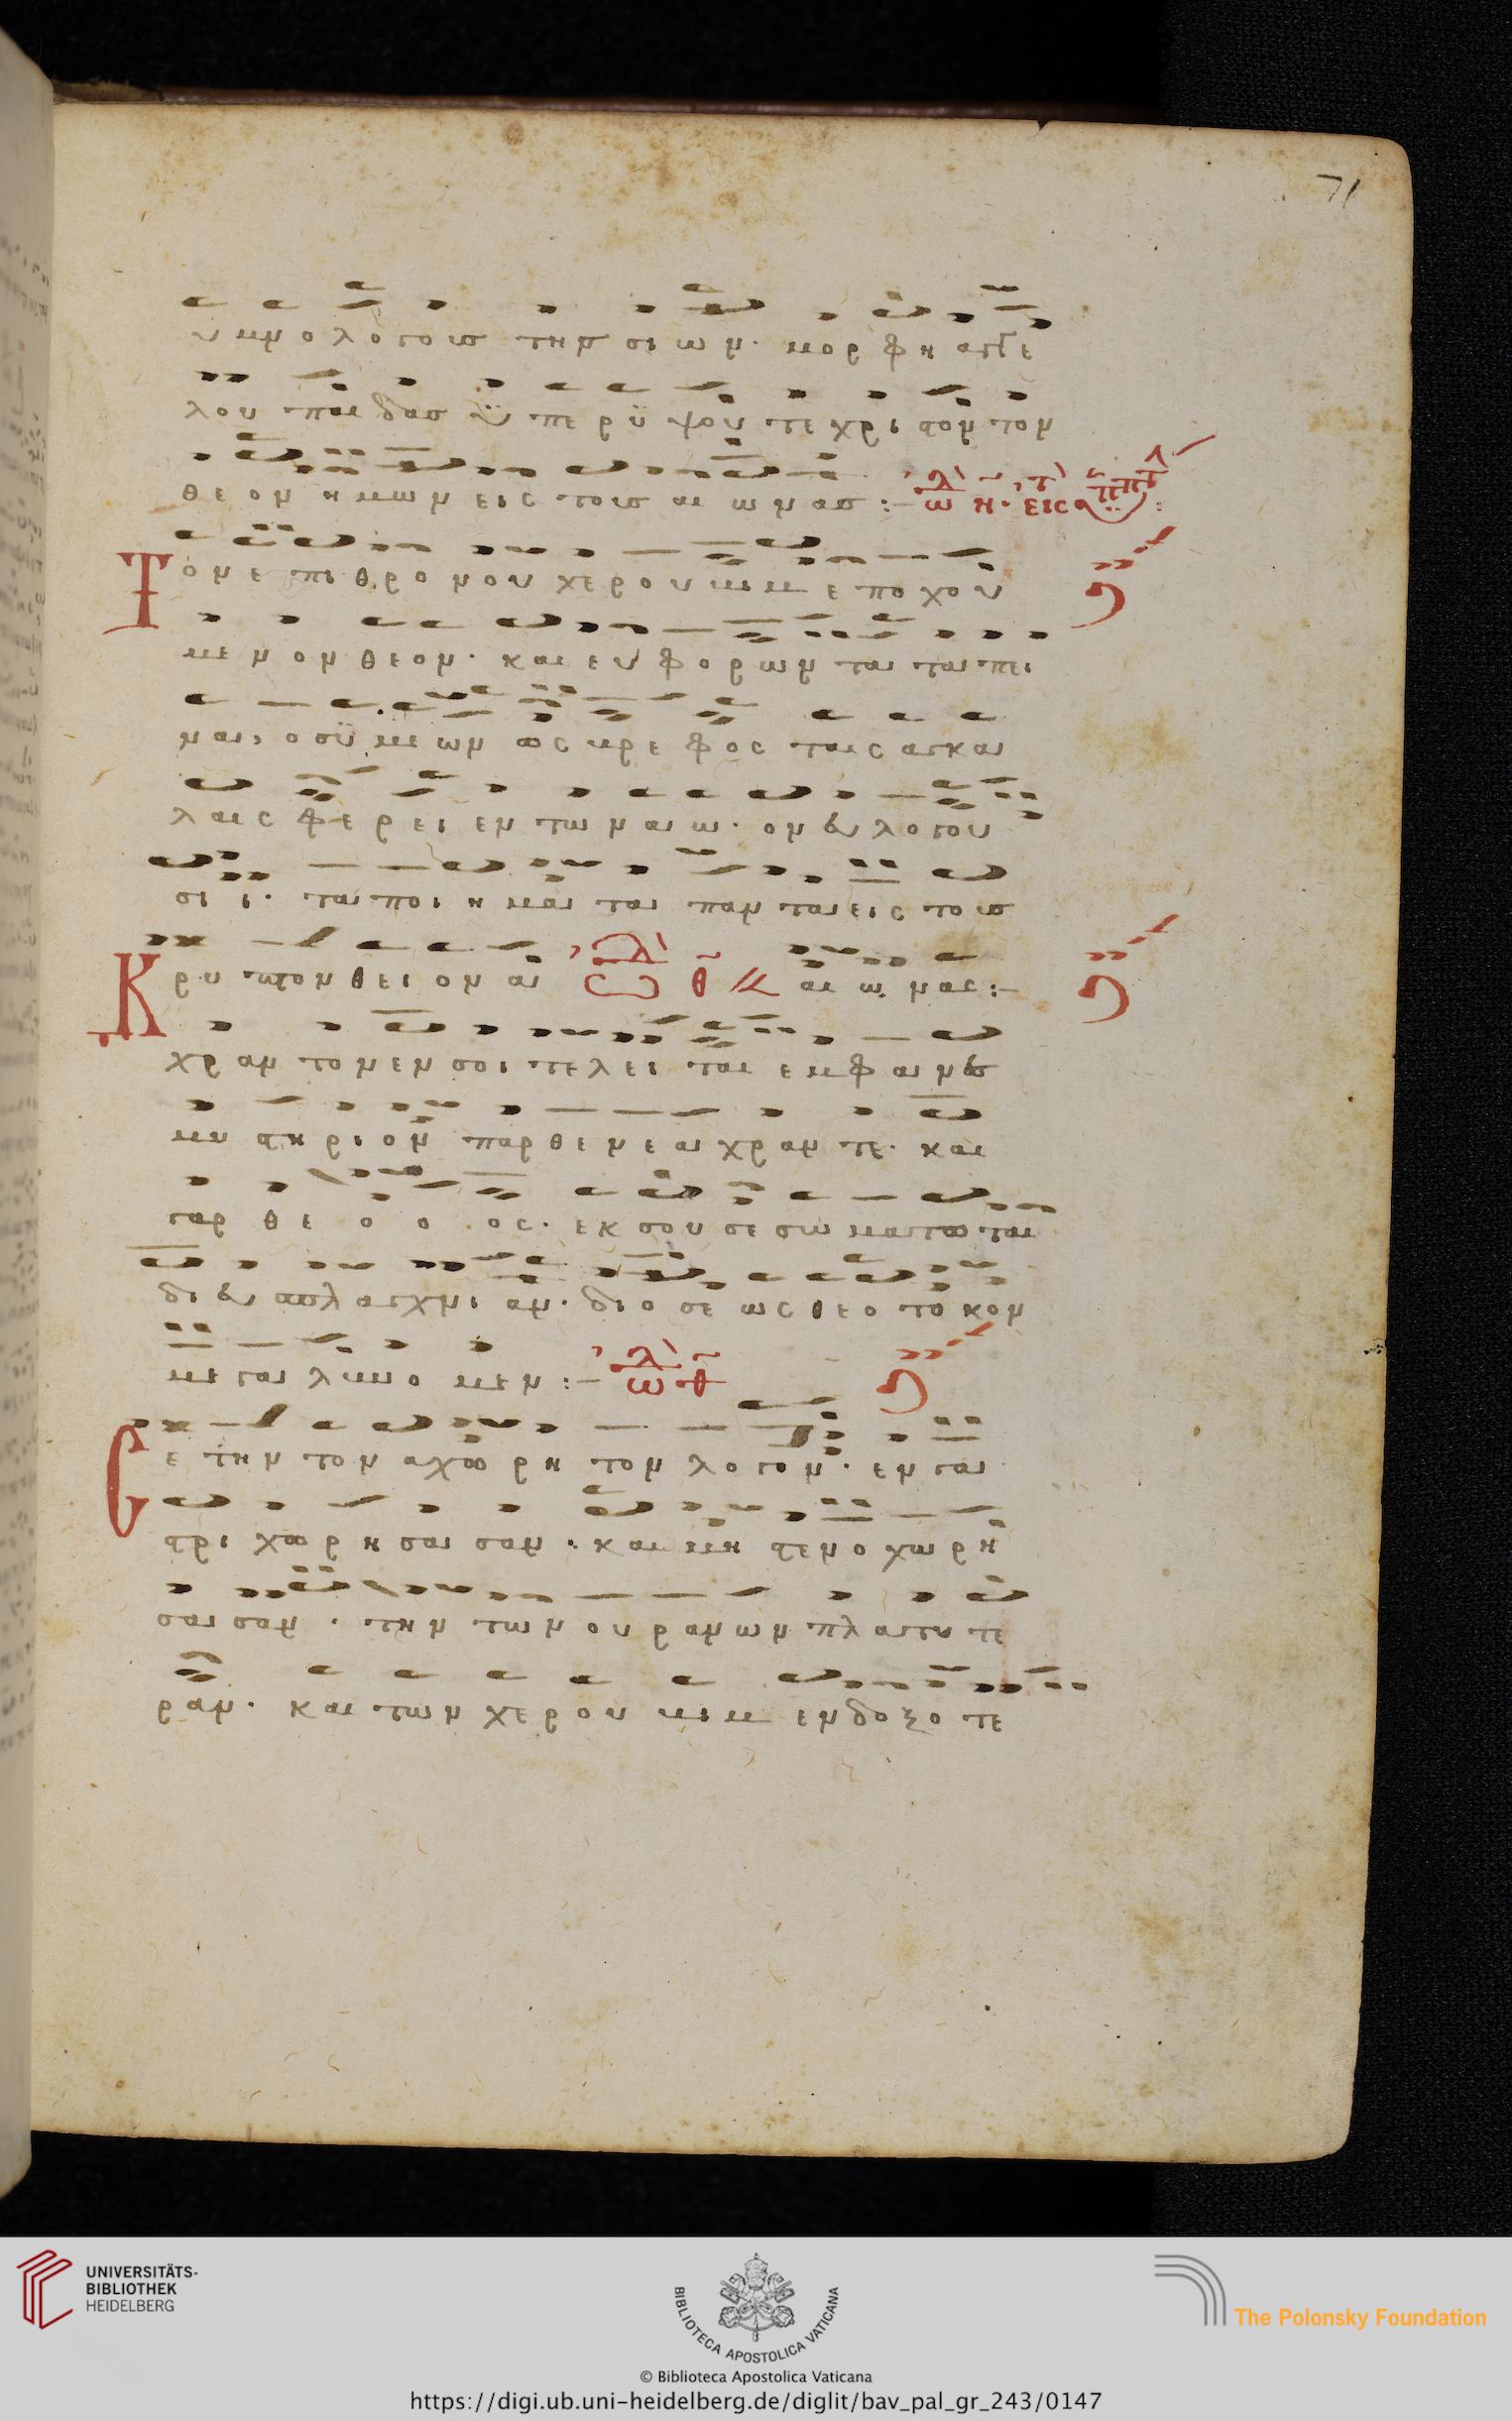 71
υμνολογουσ την σιων· μορφη αγγε
λου παιδασ ϋπερυψουτε χριστον τον
θεον ημων εις τους αιωνας :–
Τον επι θρονου χερουβιμ εποχου
μενον θεον· και ευφορων τα ταπει
να, ο συμεων ως βρεφος ταις αγκα
λαις φερει εν τω ναω· ον ευλογου
σι ι· τα ποιηματα παντα εις τους
Κρυπτον θειον α αιωνας :–
χραντον εν σοι τελειται εμφανως
μυστηριον παρθενε αχραντε· και
γαρ θεοοος· εκ σου σεσωματωται
δι ευσπλαγχνιαν· διο σε ως θεοτοκον
μεγαλυνομεν :–
Σε την τον αχωρητον λογον· εν γα
στρι χωρησασαν· και μη στενοχωρη
σασαν· την των ουρανων πλατυτε
ραν· και των χερουβιμ ενδοξοτε
UNIVERSITÄTS-
BIBLIOTHEK
HEIDELBERG
BIBLIOTECA APOSTOLICA VATICANA
The Polonsky Foundation
© Biblioteca Apostolica Vaticana
https://digi.ub.uni-heidelberg.de/diglit/bav_pal_gr_243/0147